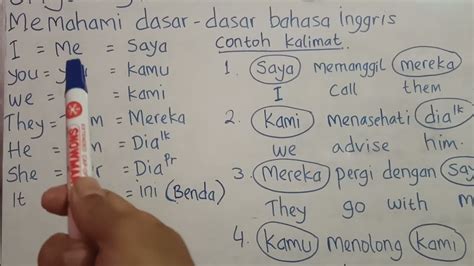 Memahami dasar-dasar bahasa inggris
I = Me = Saya
you = = Kamu
we = = Kami
They = = Mereka
He = = Dia lk
She = = Dia Pr
It = ini (Benda)
SNOWMAN
Contoh Kalimat.
1. Saya memanggil mereka
I call them
2. Kami menasehati dia lk
we advise him.
3. Mereka pergi dengan
They go with
4. Kamu menolong kami